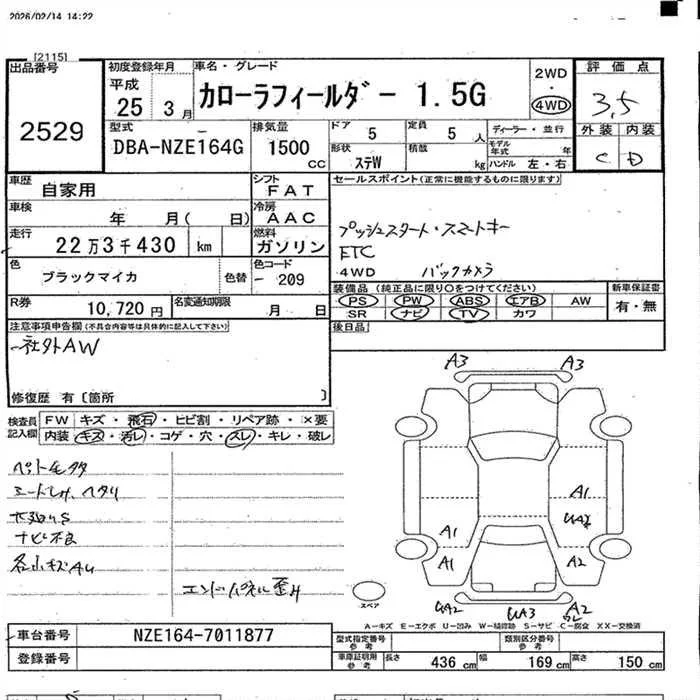 2026/02/14 14:22
[2115]
出品番号
2529
初度登録年月
平成
25 3月
車名・グレード
カローラフィールダー 1.5G
2WD
・
4WD
評価点
3.5
外装 内装
C D
型式
DBA-NZE164G
排気量
1500 CC
ドア 5
定員 5 人
ディーラー・並行
モデル年式 年
形状 ステW
積載 kg
ハンドル 左・右
車歴 自家用
シフト FAT
車検 年 月( 日)
冷房 AAC
走行 22万3千430 km
燃料 ガソリン
色 ブラックマイカ 色替
色コード - 209
R券 10,720円
名変通知期限 月 日
セールスポイント(正常に機能するものに限ります)
プッシュスタート・スマートキー
ETC
4WD バックカメラ
装備品 (純正品に限り○をつけてください)
PS PW ABS エアB AW
SR ナビ TV カワ
新車保証書
有・無
後日品
注意事項申告欄(不具合内容等は具体的に記入して下さい)
社外AW
修復歴 有〔箇所 〕
検査員記入欄
FW キズ・飛石・ヒビ割・リペア跡・×要
内装 キズ・汚レ・コゲ・穴・スレ・キレ・破レ
ナビ不良
各小キズAU
エンドパネル歪み
A3 A3
A1
A1
A1 A2
UA2 UA3 A2
スペア
A-キズ E-エクボ U-凹み W-補修跡 S-サビ C-腐食 XX-交換済
車台番号 NZE164-7011877
登録番号
型式指定番号 参考
類別区分番号 参考
車庫証明用 参考 長さ 436 cm 幅 169 cm 高さ 150 cm